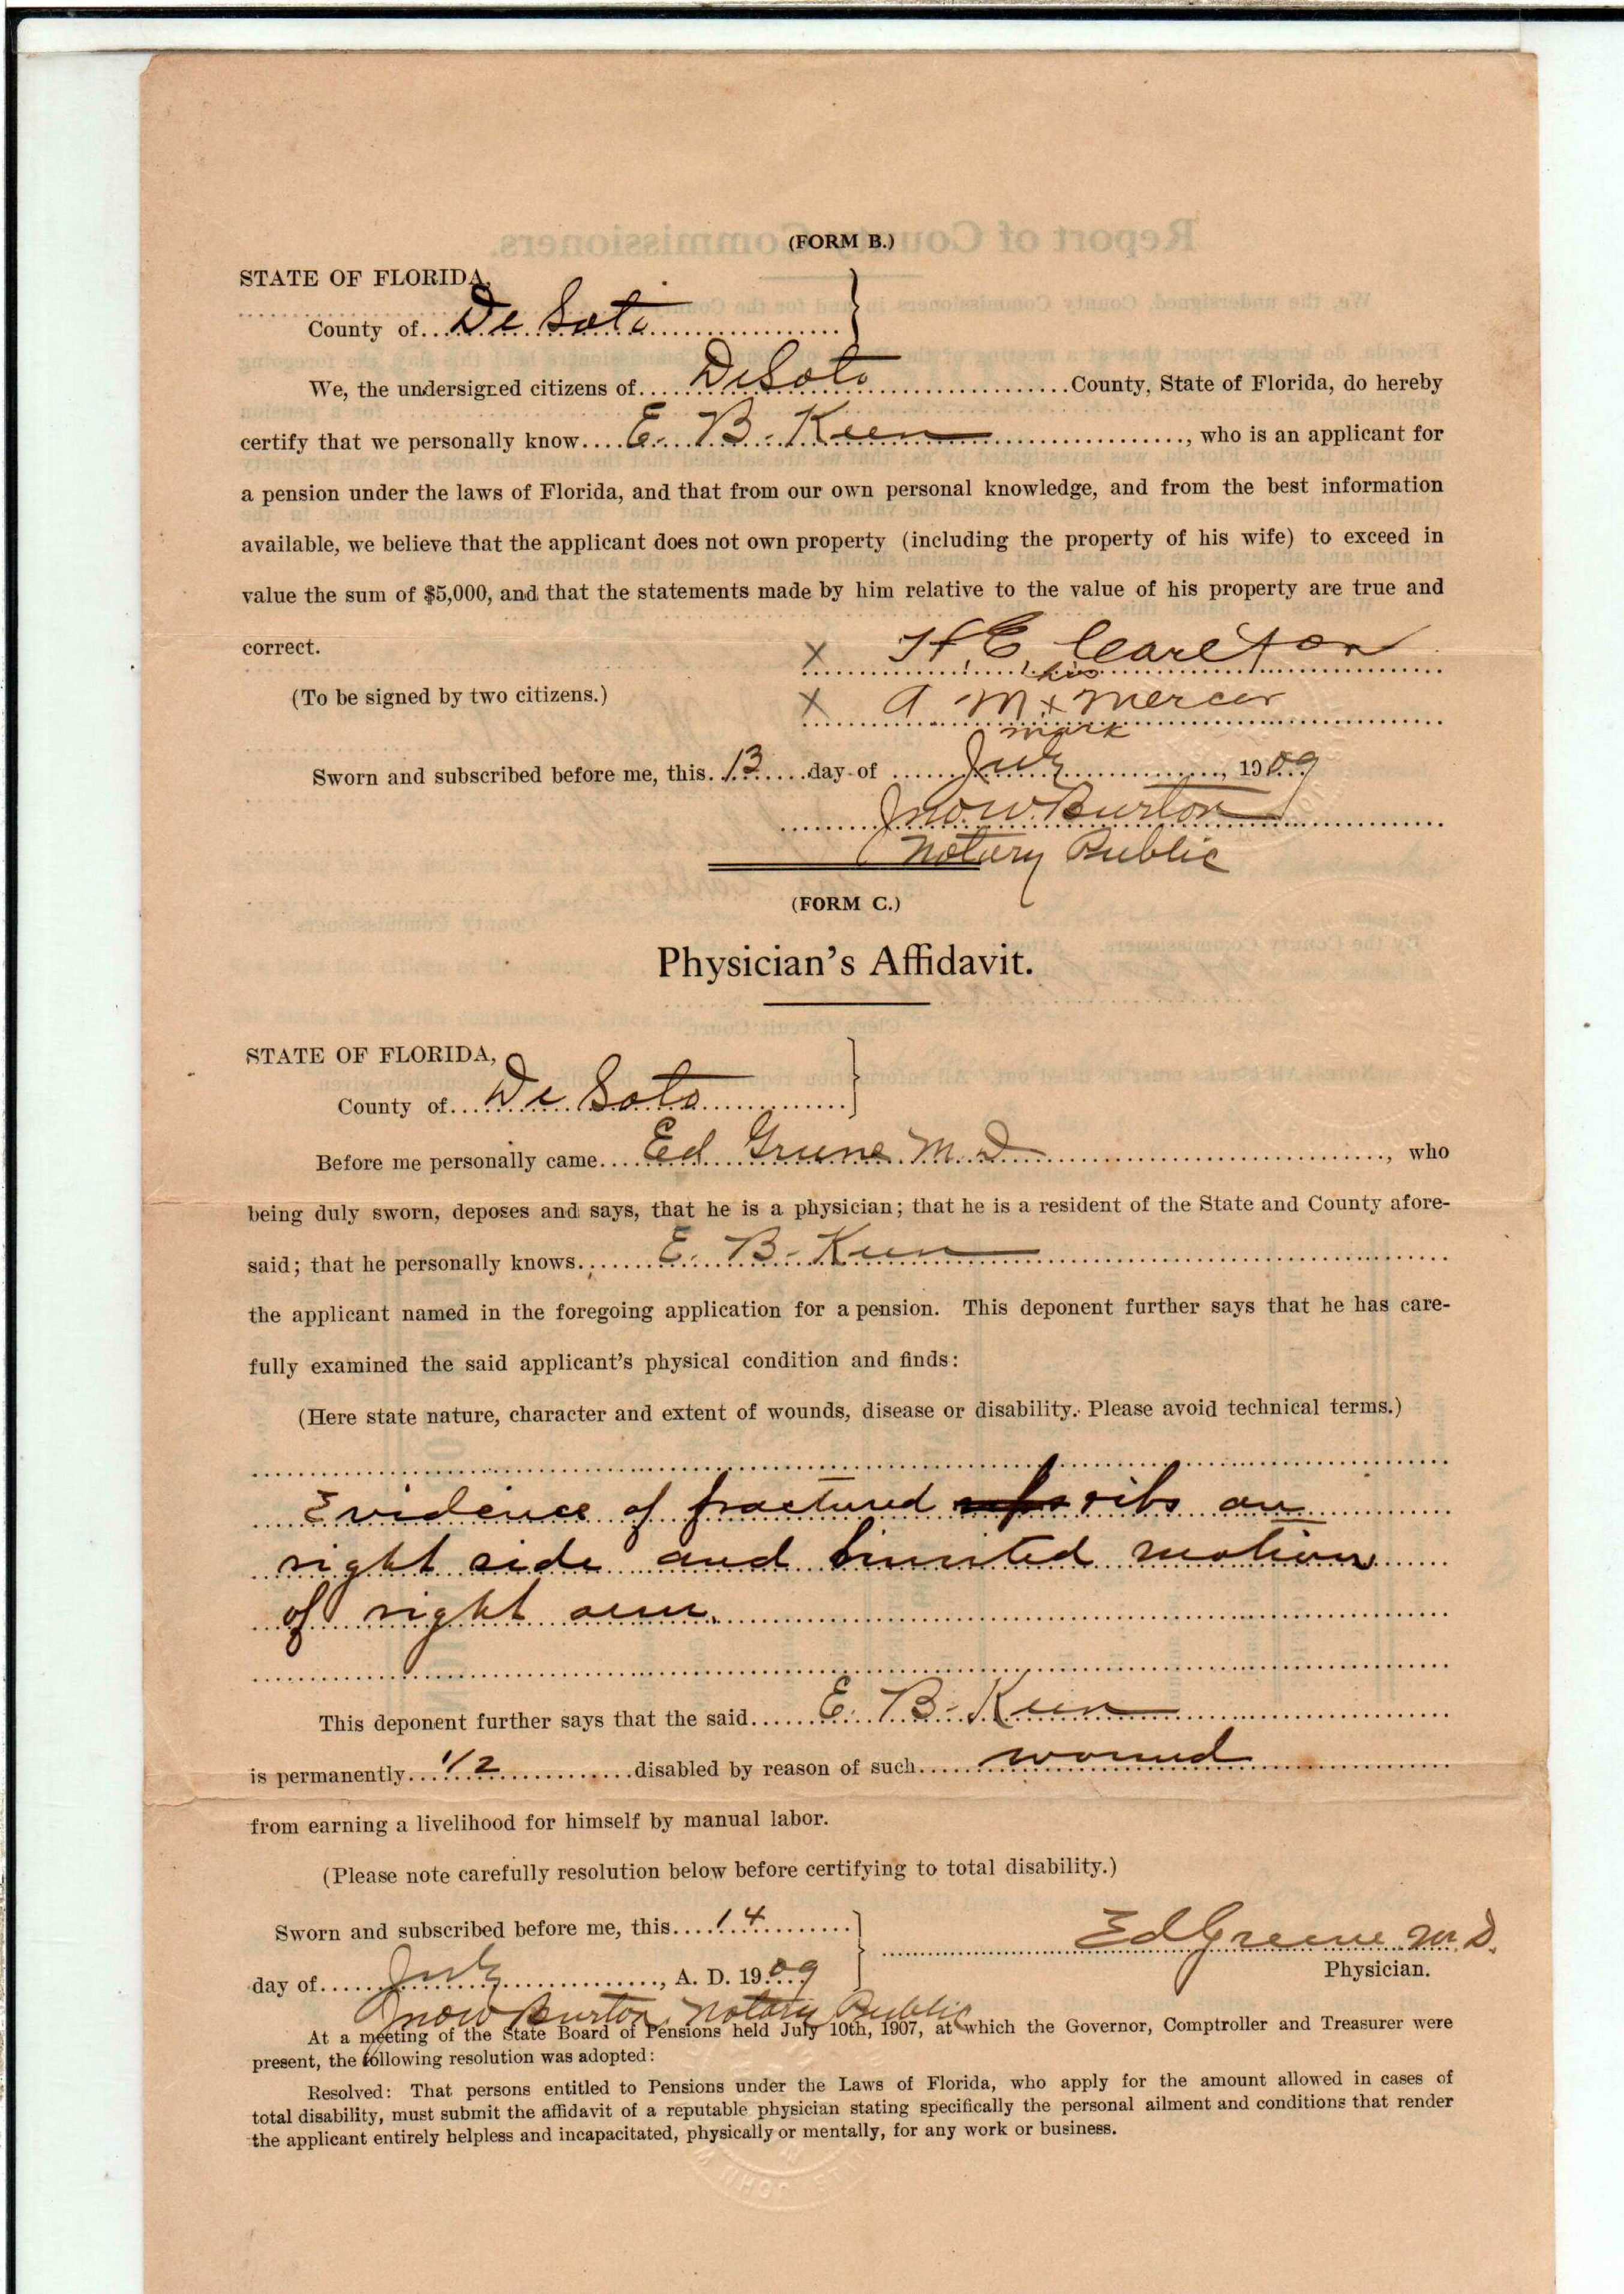 (FORM B.)
STATE OF FLORIDA,
County of De Soto
We, the undersigned citizens of DeSoto County, State of Florida, do hereby
certify that we personally know E. B. Keen, who is an applicant for
a pension under the laws of Florida, and that from our own personal knowledge, and from the best information
available, we believe that the applicant does not own property (including the property of his wife) to exceed in
value the sum of $5,000, and that the statements made by him relative to the value of his property are true and
correct.
X H E Carlton
(To be signed by two citizens.)
his
X A M x Mercer
mark
Sworn and subscribed before me, this 13 day of July, 1909
Jno W. Burton
Notary Public
(FORM C.)
Physician's Affidavit.
STATE OF FLORIDA,
County of De Soto
Before me personally came Ed Greene M. D., who
being duly sworn, deposes and says, that he is a physician; that he is a resident of the State and County afore-
said; that he personally knows E. B. Keen
the applicant named in the foregoing application for a pension. This deponent further says that he has care-
fully examined the said applicant's physical condition and finds:
(Here state nature, character and extent of wounds, disease or disability. Please avoid technical terms.)
Evidence of fractured ribs on
right side and limited motion
of right arm.
This deponent further says that the said E. B. Keen
is permanently 1/2 disabled by reason of such wound
from earning a livelihood for himself by manual labor.
(Please note carefully resolution below before certifying to total disability.)
Sworn and subscribed before me, this 14
Ed Greene M.D.
Physician.
day of July, A. D. 1909
Jno W Burton, Notary Public
At a meeting of the State Board of Pensions held July 10th, 1907, at which the Governor, Comptroller and Treasurer were
present, the following resolution was adopted:
Resolved: That persons entitled to Pensions under the Laws of Florida, who apply for the amount allowed in cases of
total disability, must submit the affidavit of a reputable physician stating specifically the personal ailment and conditions that render
the applicant entirely helpless and incapacitated, physically or mentally, for any work or business.